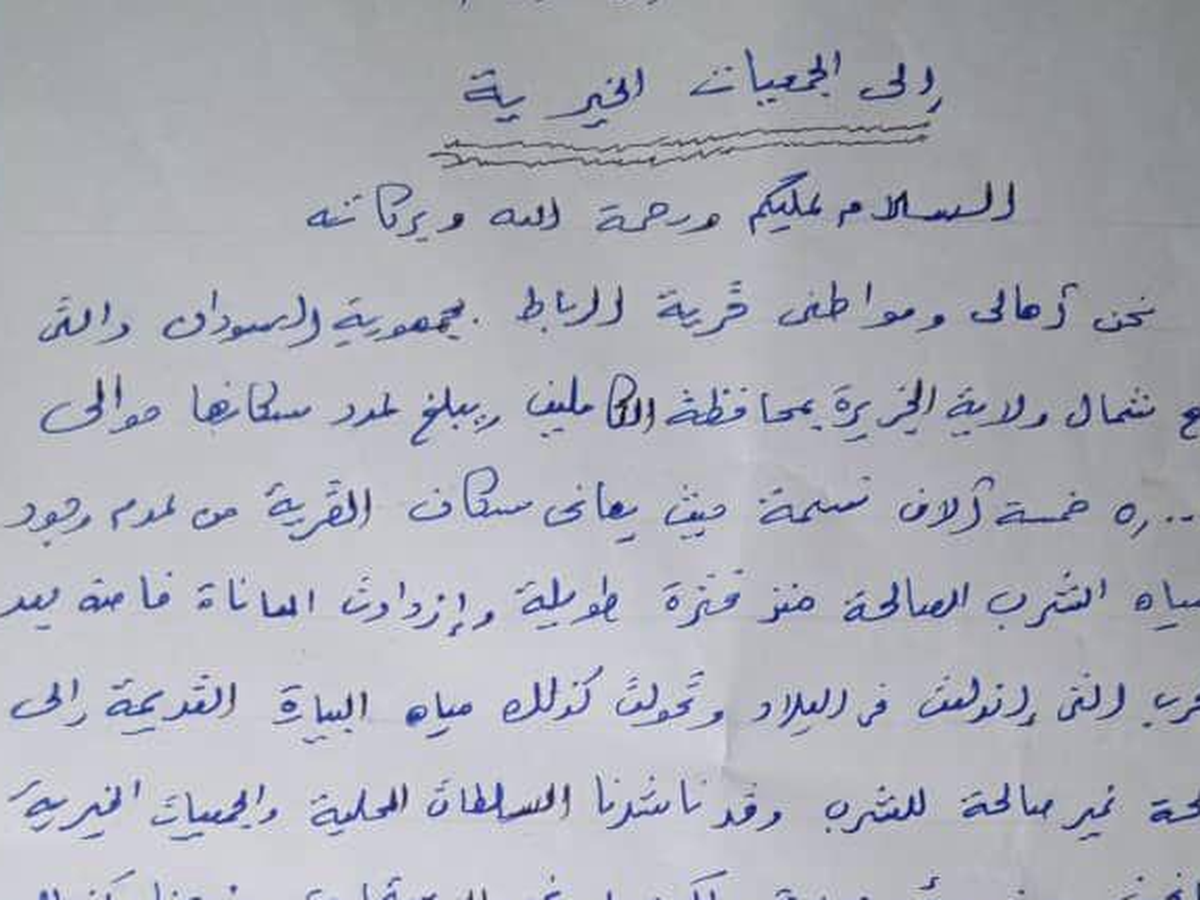 إلى الجمعيات الخيرية
السلام عليكم ورحمة الله وبركاته
نحن أهالى ومواطنى قرية الرباط بجمهورية السودان والتى
شمال ولاية الجزيرة بمحافظة الكاملين ويبلغ عدد سكانها حوالى
خمسة آلاف نسمة حيث يعانى سكان القرية من عدم وجود
مياه الشرب الصالحة منذ فترة طويلة وإزدادت المعاناة خاصة بعد
التى إندلعت فى البلاد وتحولت كذلك مياه البيارة القديمة إلى
غير صالحة للشرب وقد ناشدنا السلطات المحلية والجمعيات الخيرية